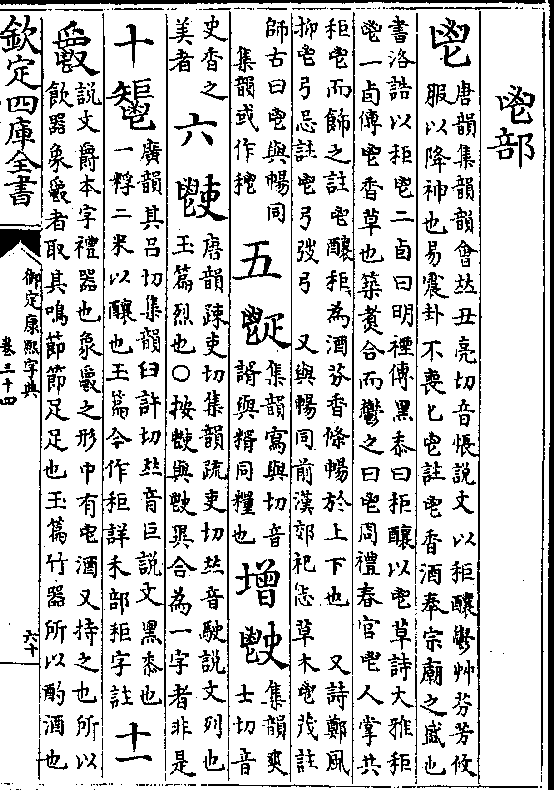 鬯部
鬯
唐韻集韻韻會𠀤丑亮切音悵說文以秬釀鬱艸芬芳攸
服以降神也易震卦不喪匕鬯註鬯香酒奉宗廟之盛也
書洛誥以秬鬯二卣曰明禋傳黑黍曰秬釀以鬯草詩大雅秬
鬯一卣傳鬯香草也築煑合而鬱之曰鬯周禮春官鬯人掌共
秬鬯而飾之註鬯釀秬為酒芬香條暢於上下也 又詩鄭風
抑鬯弓忌註鬯弓弢弓 又與暢同前漢郊祀志草木鬯茂註
師古曰鬯與暢同
集韻或作
五
集韻寫與切音
諝與糈同糧也
增
集韻爽
士切音
史香之
美者
六
唐韻疎吏切集韻疏吏切𠀤音駛說文列也
玉篇烈也〇按 與 異合為一字者非是
十
廣韻其吕切集韻臼許切𠀤音巨說文黑黍也
一稃二米以釀也玉篇今作秬詳禾部秬字註
十一
說文爵本字禮器也象 之形中有鬯酒又持之也所以
飲器象 者取其鳴節節足足也玉篇竹器所以酌酒也
欽定四庫全書
御定康熙字典
卷三十四
六十